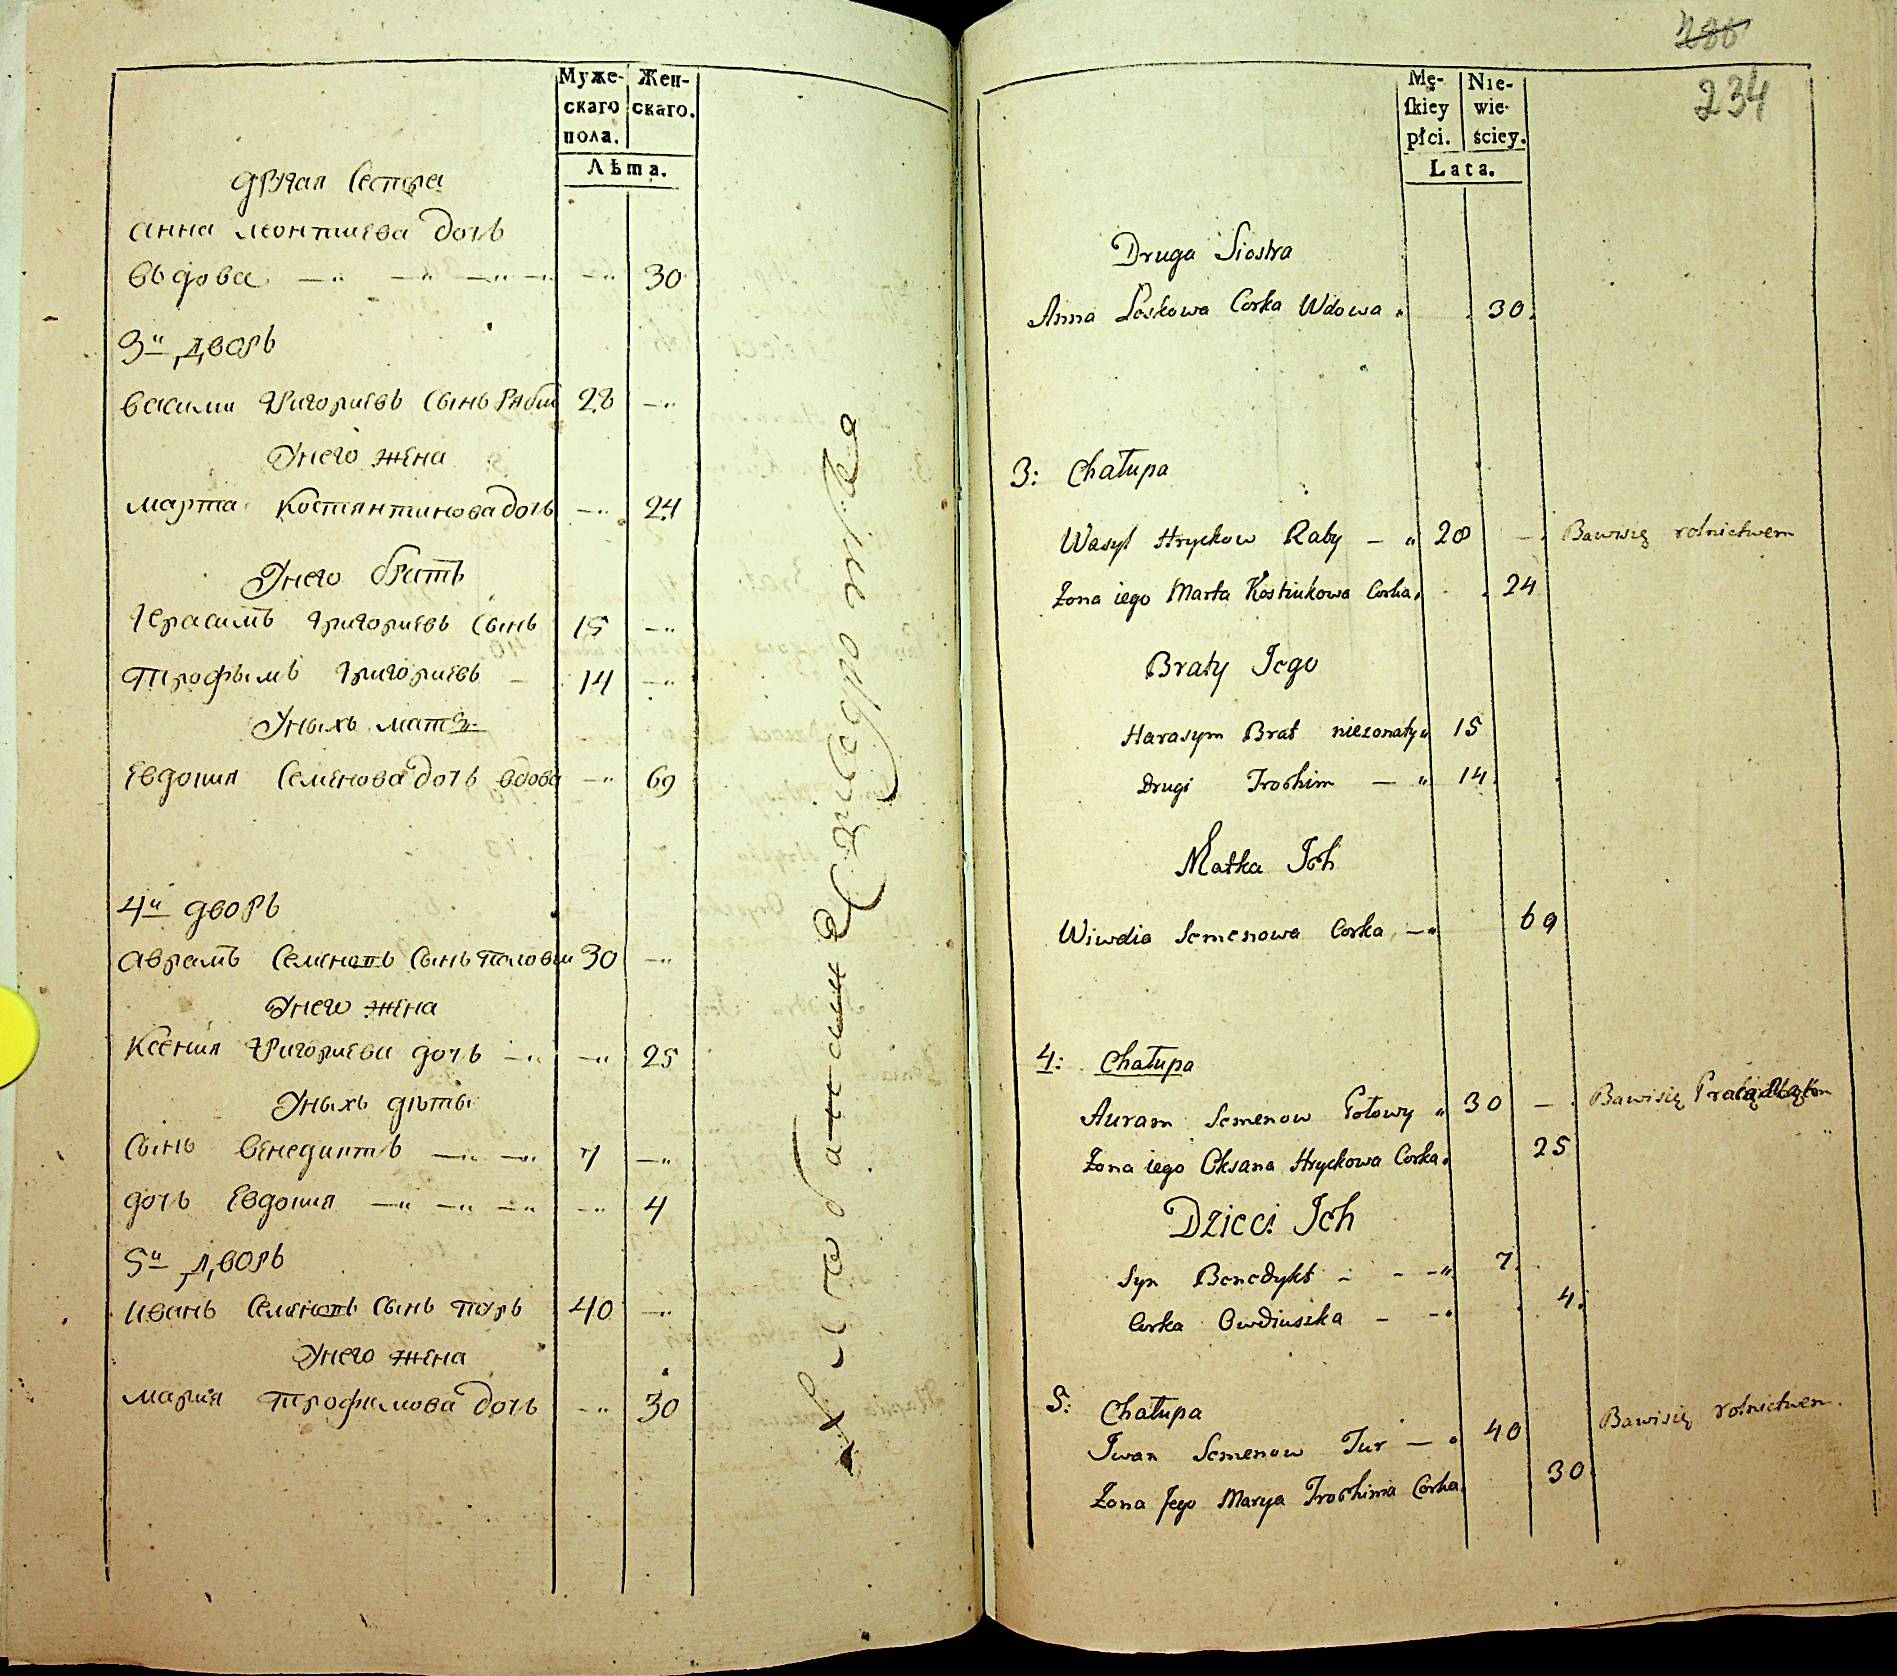 Муже-
скаго
пола.
Жен-
скаго.
Лѣта.
другая сестра
анна леонтиева дочь
вьдова 30
3й дворъ
василий григориевъ сынъ рябий 28
Унего жена
марта костянтинова дочь 24
Унего братъ
герасимъ григориевъ сынъ 15
трофымъ григориевъ 14
Уныхъ мать
евдокия семенова дочь вдова 69
4й дворъ
аврамъ семеновъ сынъ 30
Унего жена
ксения григориева дочь 25
Уныхъ дѣты
сынъ венедиктъ 7
дочь евдокия 4
5й дворъ
иванъ семеновъ сынъ туръ 40
Унего жена
мария трофимова дочь 30
286
234
Mę-
ſkiey
płci.
Nie-
wie-
ściey.
Lata.
Druga Siostra
Anna Leskowa Corka Wdowa 30
3: Chałupa
Wasyl Hryckow Raby 28 Bawisię rolnictwem
Żona iego Marta Kostiukowa Corka 24
Braty Jego
Harasym Brat niezonaty 15
Drugi Trochim 14
Matka Ich
Wiwdia Semenowa Corka 69
4: Chałupa
Auram Semenow 30 Bawisię
Żona iego Oksana Hryckowa Corka 25
Dzieci Ich
Syn Benedykt 7
Corka Owdiuszka 4
5: Chałupa
Iwan Semenow Tur 40 Bawisię rolnictwem
Żona Jego Marya Trochima Corka 30